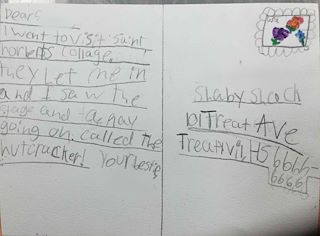 Dear?
I went to visit saint
norberts collage.
they Let me in
and I saw the
stage and a play
going on. called the
nutcracker! Your bestie,
Shaby Shack
Treat Ave
Treativil, HS 6666-
6666